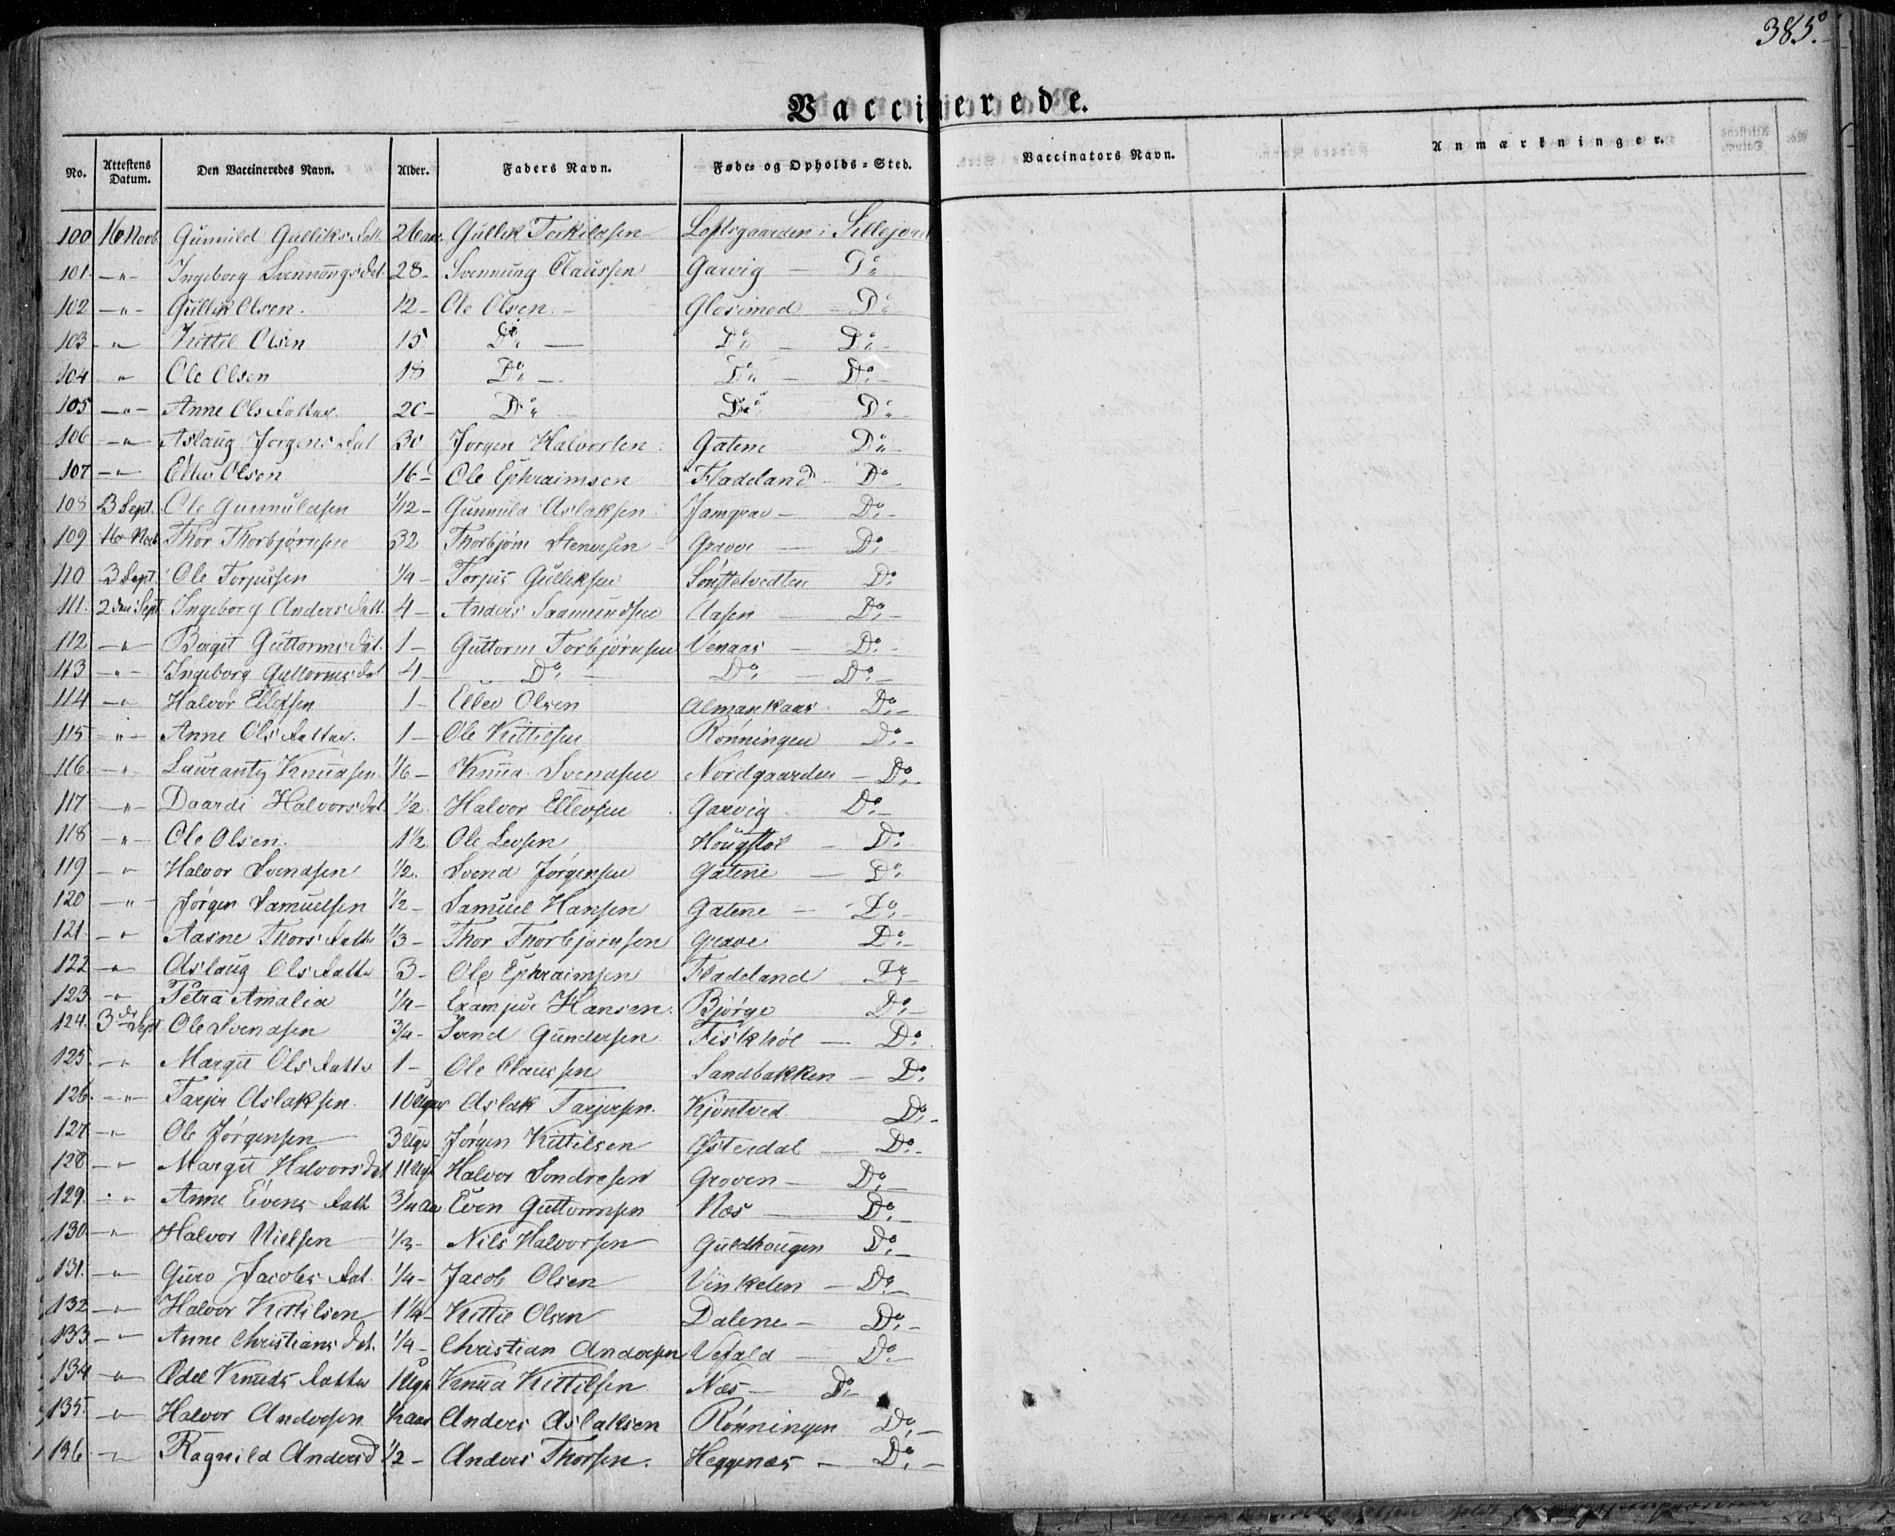 385.
Vaccinerede.
No. Attestens Datum. Den Vaccineredes Navn. Alder. Faders Navn. Føde- og Opholds-Sted. Vaccinators Navn. Anmærkninger.
100 16 Novb Gunnild Galliks Datt. 26 aar. Gullik Torkildsen Loftsgaarden i Sillejord
101. —"— Ingeborg Svennungs Dat 28- Svennung Claussen Garvig — Do
102 —"— Gullik Olsen. 12- Ole Olsen. Glosimod — Do
103 —"— Kittil Olsen 15 Do — Do — Do-
104 " Ole Olsen 18 Do — Do — Do-
105 —"— Anne Ols Datter. 20- Do Do Do-
106 —"— Aslaug Jørgens Dat 30 Jørgen Halvorsen Gatene Do-
107 —"— Ellev Olsen 16- Ole Ephraimsen Fladeland Do-
108 3 Sept. Ole Gunnuldsen 1/12- Gunnuld Aslaksen Jamgrav — Do-
109 16 Novb Thor Thorbjørnsen 32 Thorbjørn Grave — Do-
110 3 Sept. Ole Torjussen 1/4- Torjus Gulliksen Do
111. 2den Sept. Ingeborg Anders Datt. 4- Anders Saamundsen Aasen — Do-
112 —"— Birgit Guttorms Dat. 1- Guttorm Torbjørnsen Venaas — Do-
113 —"— Ingeborg Guttorms Dat 4 Do — Do — Do-
114 —"— Halvor Ellefsen 1- Ellev Olsen Almankaas Do-
115 —"— Anne Ols Datter. 1- Ole Kittilsen Rønningen Do-
116. —"— Laurantz Knudsen. 1/6- Knud Svendsen Nordgaarden — Do-
117 —"— Daardi Halvors Dat 1/2. Halvor Ellevsen Garvig Do-
118 —"— Ole Olsen. 1 1/2 Ole Leifsen Hougstøl — Do-
119 —"— Halvor Svendsen 1/2. Svend Jørgensen Gatene — Do
120 —"— Jørgen Samuelsen 1/2- Samuel Hansen Gatene — Do-
121. —"— Aasne Thors Datte 1/3- Thor Thorbjørnsen Grave Do-
122 —"— Aslaug Ols Datte 3- Ole Ephraimsen Fladeland Do
123. —"— Petra Amalia 1/4- Hansen. Bjørge Do-
124. 3de Sept Ole Svendsen 3/4- Svend Gundersen Fiskhøl — Do.
125. —"— Margit Ols Datte 1- Ole Claussen Sandbakken — Do
126. —"— Tarjer Aslaksen. 10 Uger Aslak Tarjersen. Kjøntved Do-
127 —"— Ole Jørgensen 3 Uger Jørgen Kittilsen Østerdal — Do-
128 —"— Margit Halvors Dat 11 Uger Halvor Sondresen Groven — Do-
129. —"— Anne Evens Datt 3/4 Aar Even Guttormsen Næs — Do-
130. —"— Halvor Nielsen 1/3- Nils Halvorsen Guldhougen Do-
131. —"— Guro Jacobs Dat. 1/4- Jacob Olsen Vinkelen — Do-
132 —"— Halvor Kittilsen 1 1/4- Kittil Olsen Dalene — Do-
133. —"— Anne Christians Dat. 1/4- Christian Andersen Vefald — Do-
134 —"— Odel Knuds Datter Uger Knud Kittilsen Næs — Do-
135. —"— Halvor Andersen 1/2 aar Anders Aslaksen Rønningen Do-
136. —"— Ragnild Andersd 1/2- Anders Thorsen. Heggenæs — Do-